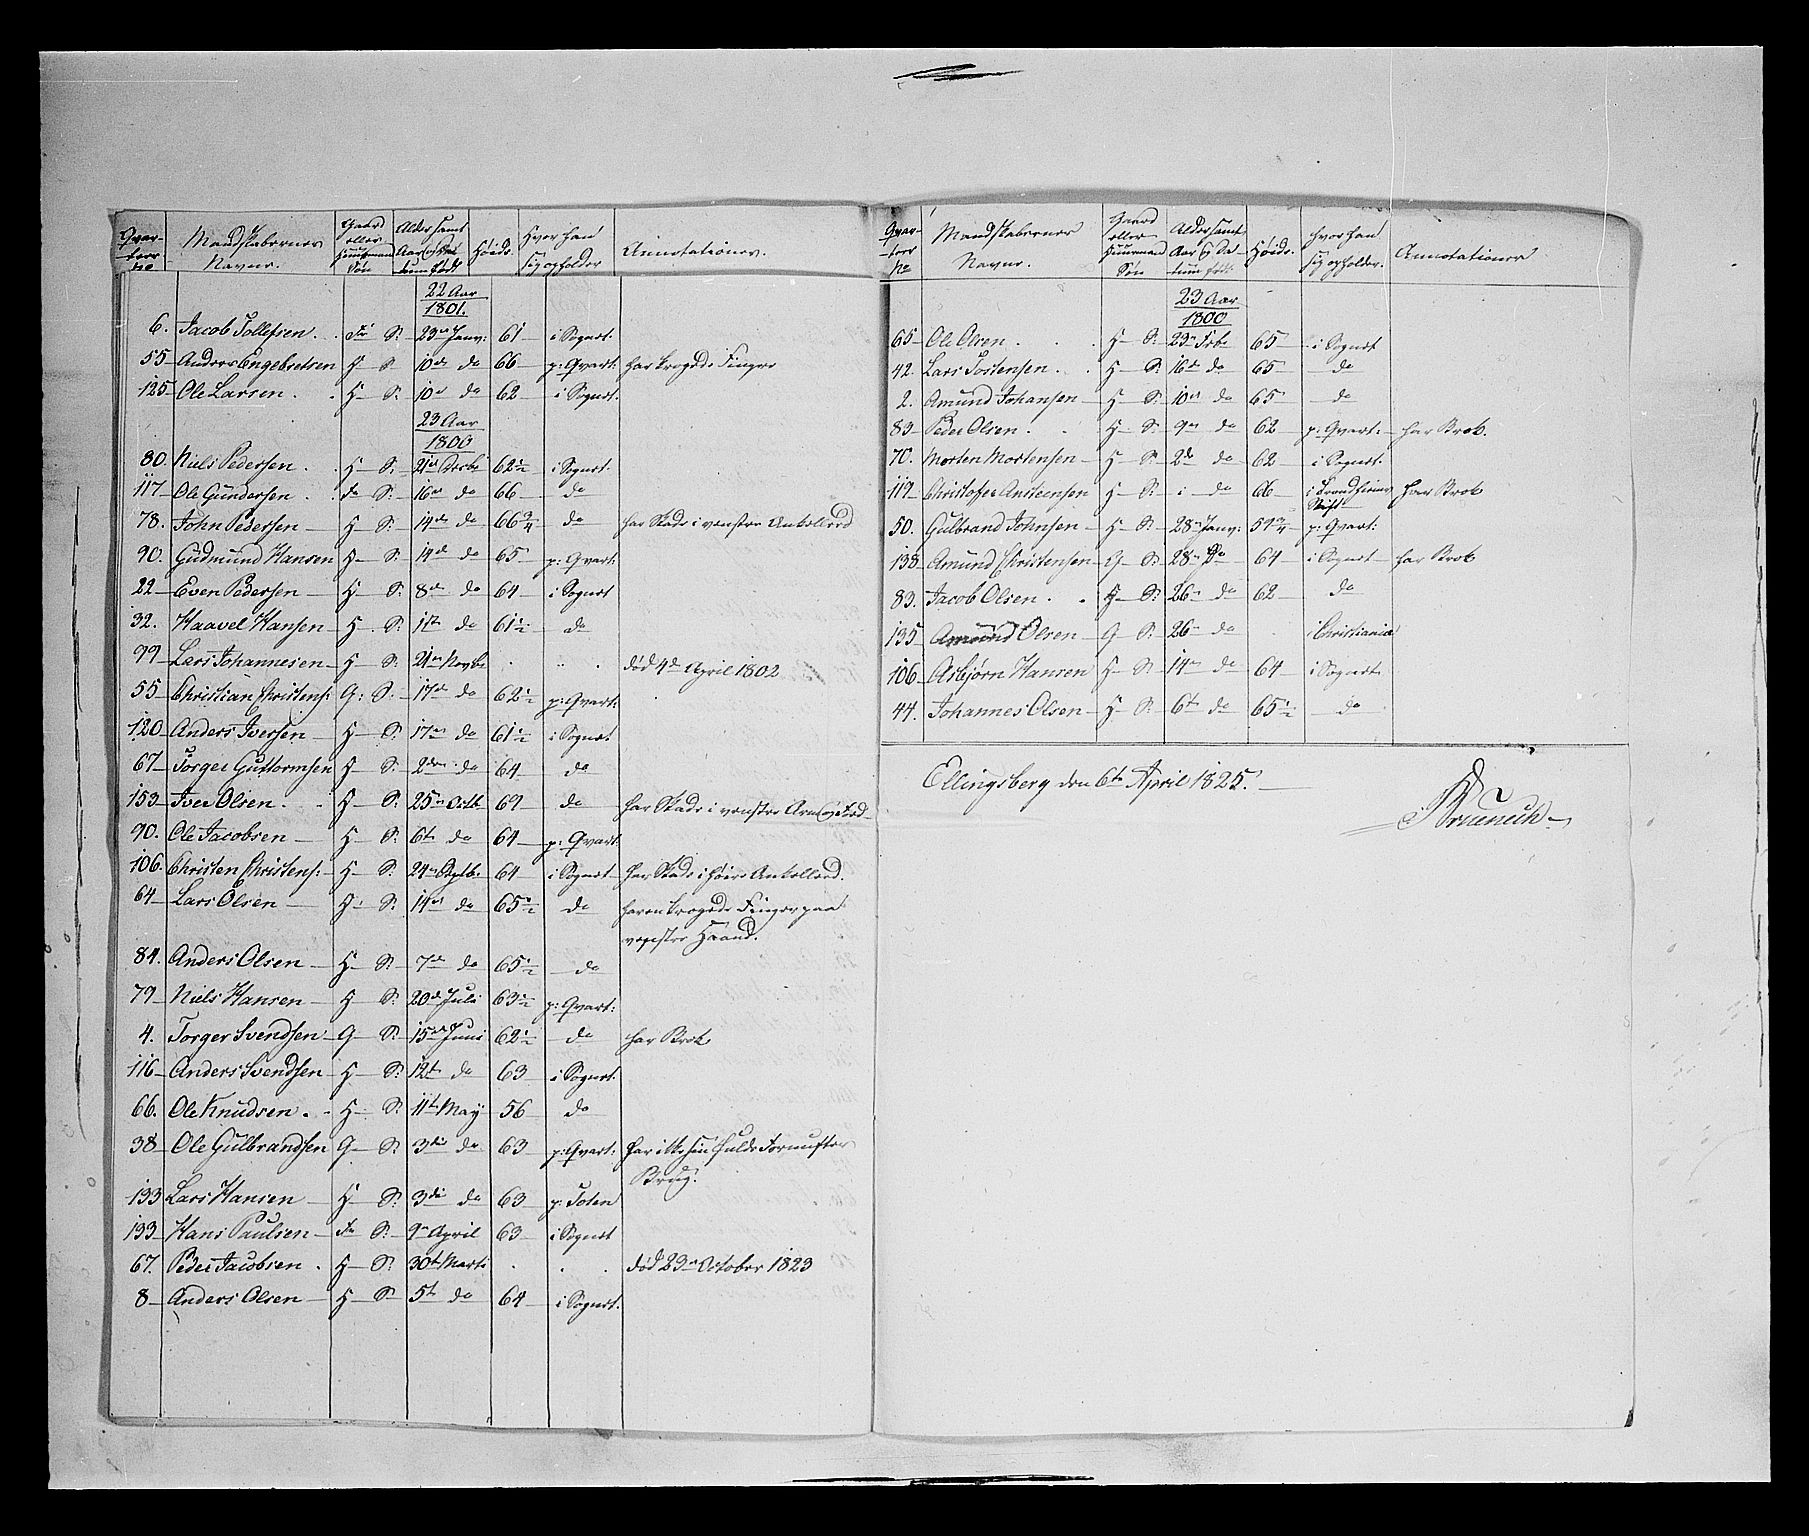 Qvar- Mandskabernes Gaard Alder samt Høide. Hvor han Annotationer.
teer Navne. eller Aar og Da- sig opholder
No Huusmand tum født
Søn
22 Aar
1801.
6. Jacob Tollefsen . . Do S. 23de Janv: 61 i Sognet.
55 Anders Engebretsen H S 10de do 66 p: Qvart: har krogede Finger
125 Ole Larsen . . H S. 10de do 62 i Sognet.
23 Aar
1800
80. Niels Pedersen . . H S. 21de Decbr 62½ i Sognet.
117 Ole Gundersen . do S. 16de do 66 do
78. John Pedersen H S. 14de do 66¾ do har Skade i venstre Ankelleed
90. Gudmund Hansen H S. 14de do 65 p: Qvart:
22 Even Pedersen H S. 8de do 64 i Sognet
32. Haavel Hansen H . S. 11te do 61½ do
99 Lars Johannesen H S. 21de Novbr . . . død 4de April 1802
55 Christian Christens: G: S. 17de do 62½ p: Qvart:
120 Anders Iversen H S. 17de do 61½ i Sognet
67 Torger Guttormsen H S. 2den do 64 do
153 Iver Olsen . . H S. 25de Octb. 69 do har Skade i venstre Arm og Fod
90. Ole Jacobsen H S. 6te do 64 p: Qvart.
106. Christen Christens: H S. 24de Septb. 64 i Sognet har Skade i høire Ankelleed.
64 Lars Olsen H S. 14de do 65½ do har en krogede Finger paa
venstre Haand.
84. Anders Olsen H S. 7de do 65½ do
79 Niels Hansen H S. 20de Juli 63½ p: Qvart:
4. Torger Svendsen G S. 15de Juni 62½ do har Brok
116 Anders Svendsen H S. 12te do 63 i Sognet.
66. Ole Knudsen . . H S. 11te May 56 do
38 Ole Gulbrandsen G S. 3die do 63 p: Qvart: har ikke sin fulde Fornufter
Brug.
133 Lars Hansen H S. 3die do 63 p: Toten
133 Hans Paulsen do S. 9de April 63 i Sognet
67. Peder Jacobsen . H S. 30te Marti . . . død 23de October 1823
8 Anders Olsen H S 5te do 64 i Sognet.
Qvar- Mandskabernes Gaard Alder samt Høide. hvor han Annotationer
teer Navne. eller Aar og Da- sig opholder.
No Huusmand tum født.
Søn
23 Aar
1800
65 Ole Olsen . . . H S. 23de Febr 65 i Sognet
42. Lars Tostensen . . H S. 16de do 65 do
2. Amund Johansen H S. 10de do 65 do
83 Peder Olsen . . H S. 9de do 62 p: Qvart: har Brok.
70. Morten Mortensen H S. 2de do 62 i Sognet.
119 Christofer Ansteensen H S. i do 66 i Trondhiems har Brok
Stift
50. Gulbrand Johnsen H S. 28de Janv: 59¾ p: Qvart:
138 Amund Christensen G S. 28de do 64 i Sognet har Brok
83. Jacob Olsen . . H S. 26de do 62 do
135 Amund Olsen G S. 26de do . i Christiania
106 Asbjørn Hansen H S. 14de do 64 i Sognet
44. Johannes Olsen H S. 6te do 65½ do
Ellingsberg den 6te April 1825.